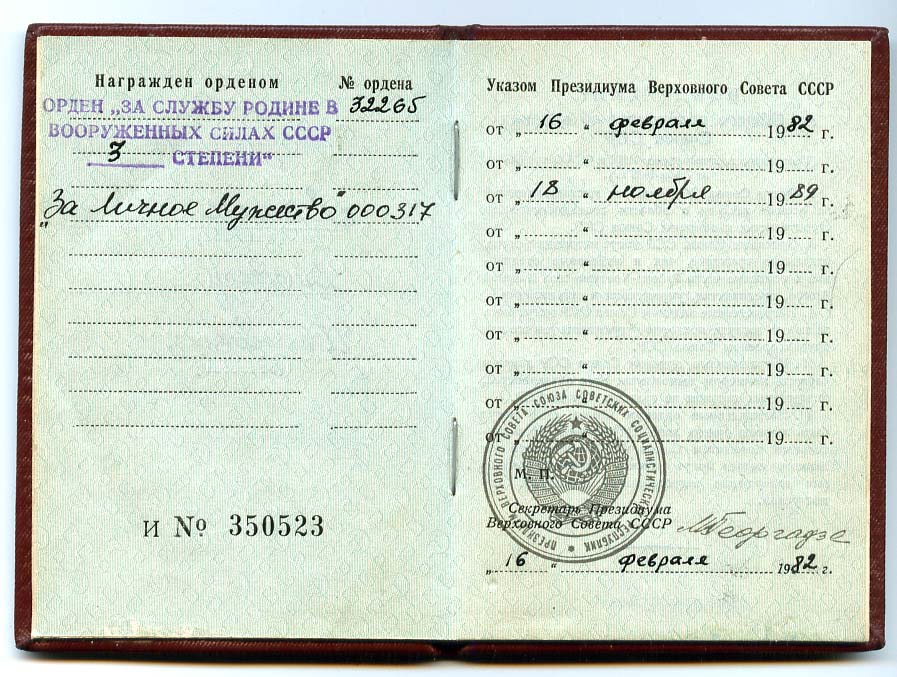 Награжден орденом
№ ордена
ОРДЕН „ЗА СЛУЖБУ РОДИНЕ В
ВООРУЖЕННЫХ СИЛАХ СССР
3 СТЕПЕНИ"
32265
„За Личное Мужество" 000317
И № 350523
Указом Президиума Верховного Совета СССР
от „ 16 “ февраля 1982 г.
от „ “ 19 г.
от „ 18 “ ноября 1989 г.
от „ “ 19 г.
от „ “ 19 г.
от „ “ 19 г.
от „ “ 19 г.
от „ “ 19 г.
от „ “ 19 г.
от „ “ 19 г.
ПРЕЗИДИУМ ВЕРХОВНОГО СОВЕТА СОЮЗА СОВЕТСКИХ СОЦИАЛИСТИЧЕСКИХ РЕСПУБЛИК
М. П.
Секретарь Президиума
Верховного Совета СССР
МГеоргадзе
„ 16 “ февраля 1982 г.